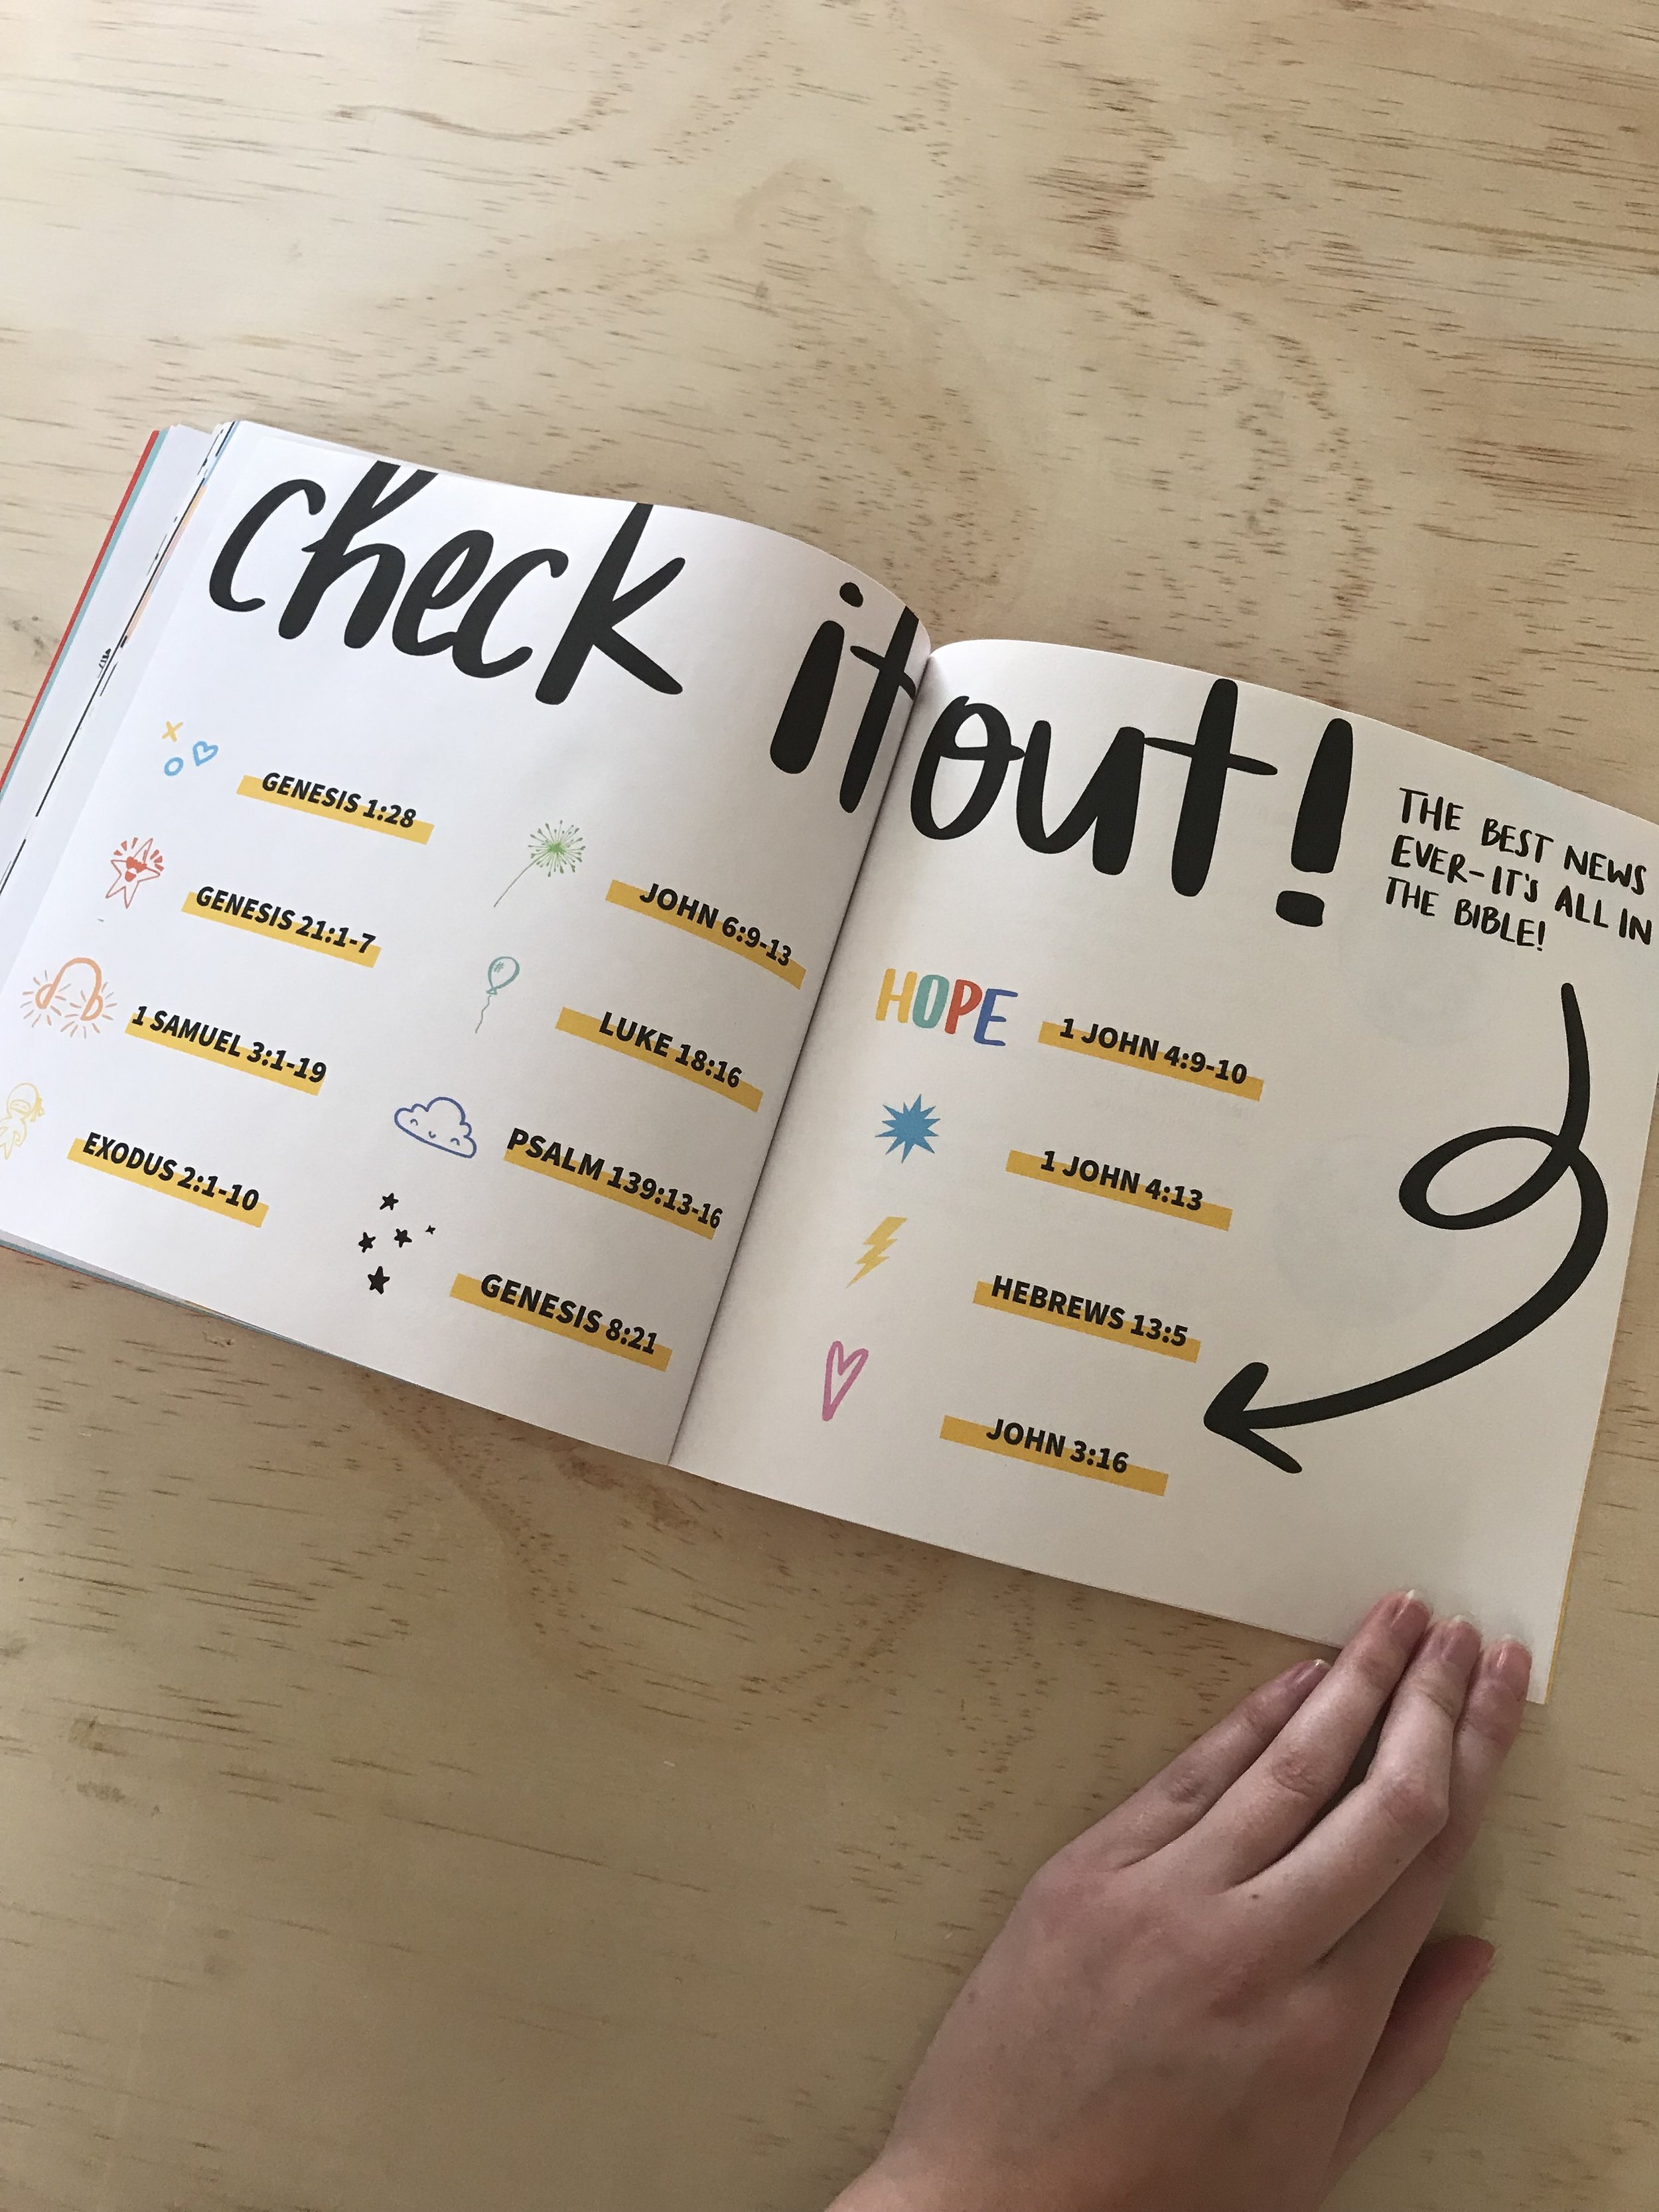 check it out!
GENESIS 1:28
GENESIS 21:1-7
1 SAMUEL 3:1-19
EXODUS 2:1-10
JOHN 6:9-13
LUKE 18:16
PSALM 139:13-16
GENESIS 8:21
THE BEST NEWS
EVER-IT'S ALL IN
THE BIBLE!
HOPE 1 JOHN 4:9-10
1 JOHN 4:13
HEBREWS 13:5
JOHN 3:16